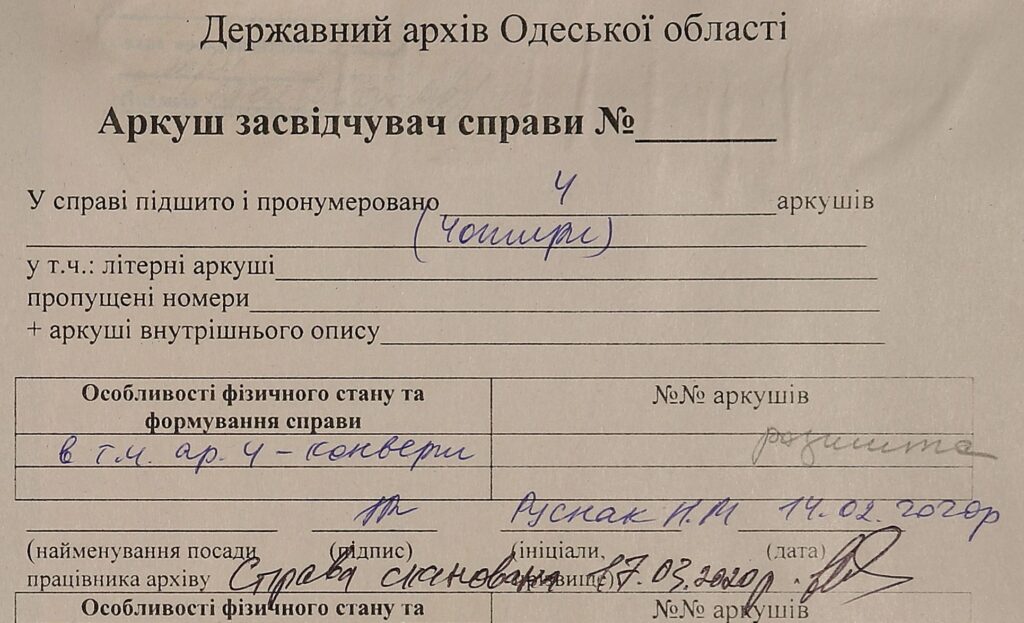 Державний архів Одеської області
Аркуш засвідчувач справи №______
У справі підшито і пронумеровано 4 аркушів
(чотири)
у т.ч.: літерні аркуші
пропущені номери
+ аркуші внутрішнього опису
Особливості фізичного стану та формування справи №№ аркушів
в т.ч. ар. 4 - конверт розшита
Руснак Н.М 14.02.2020р
(найменування посади (підпис) (ініціали, (дата)
працівника архіву прізвище)
Справа сканована 17.03.2020р.
Особливості фізичного стану та №№ аркушів